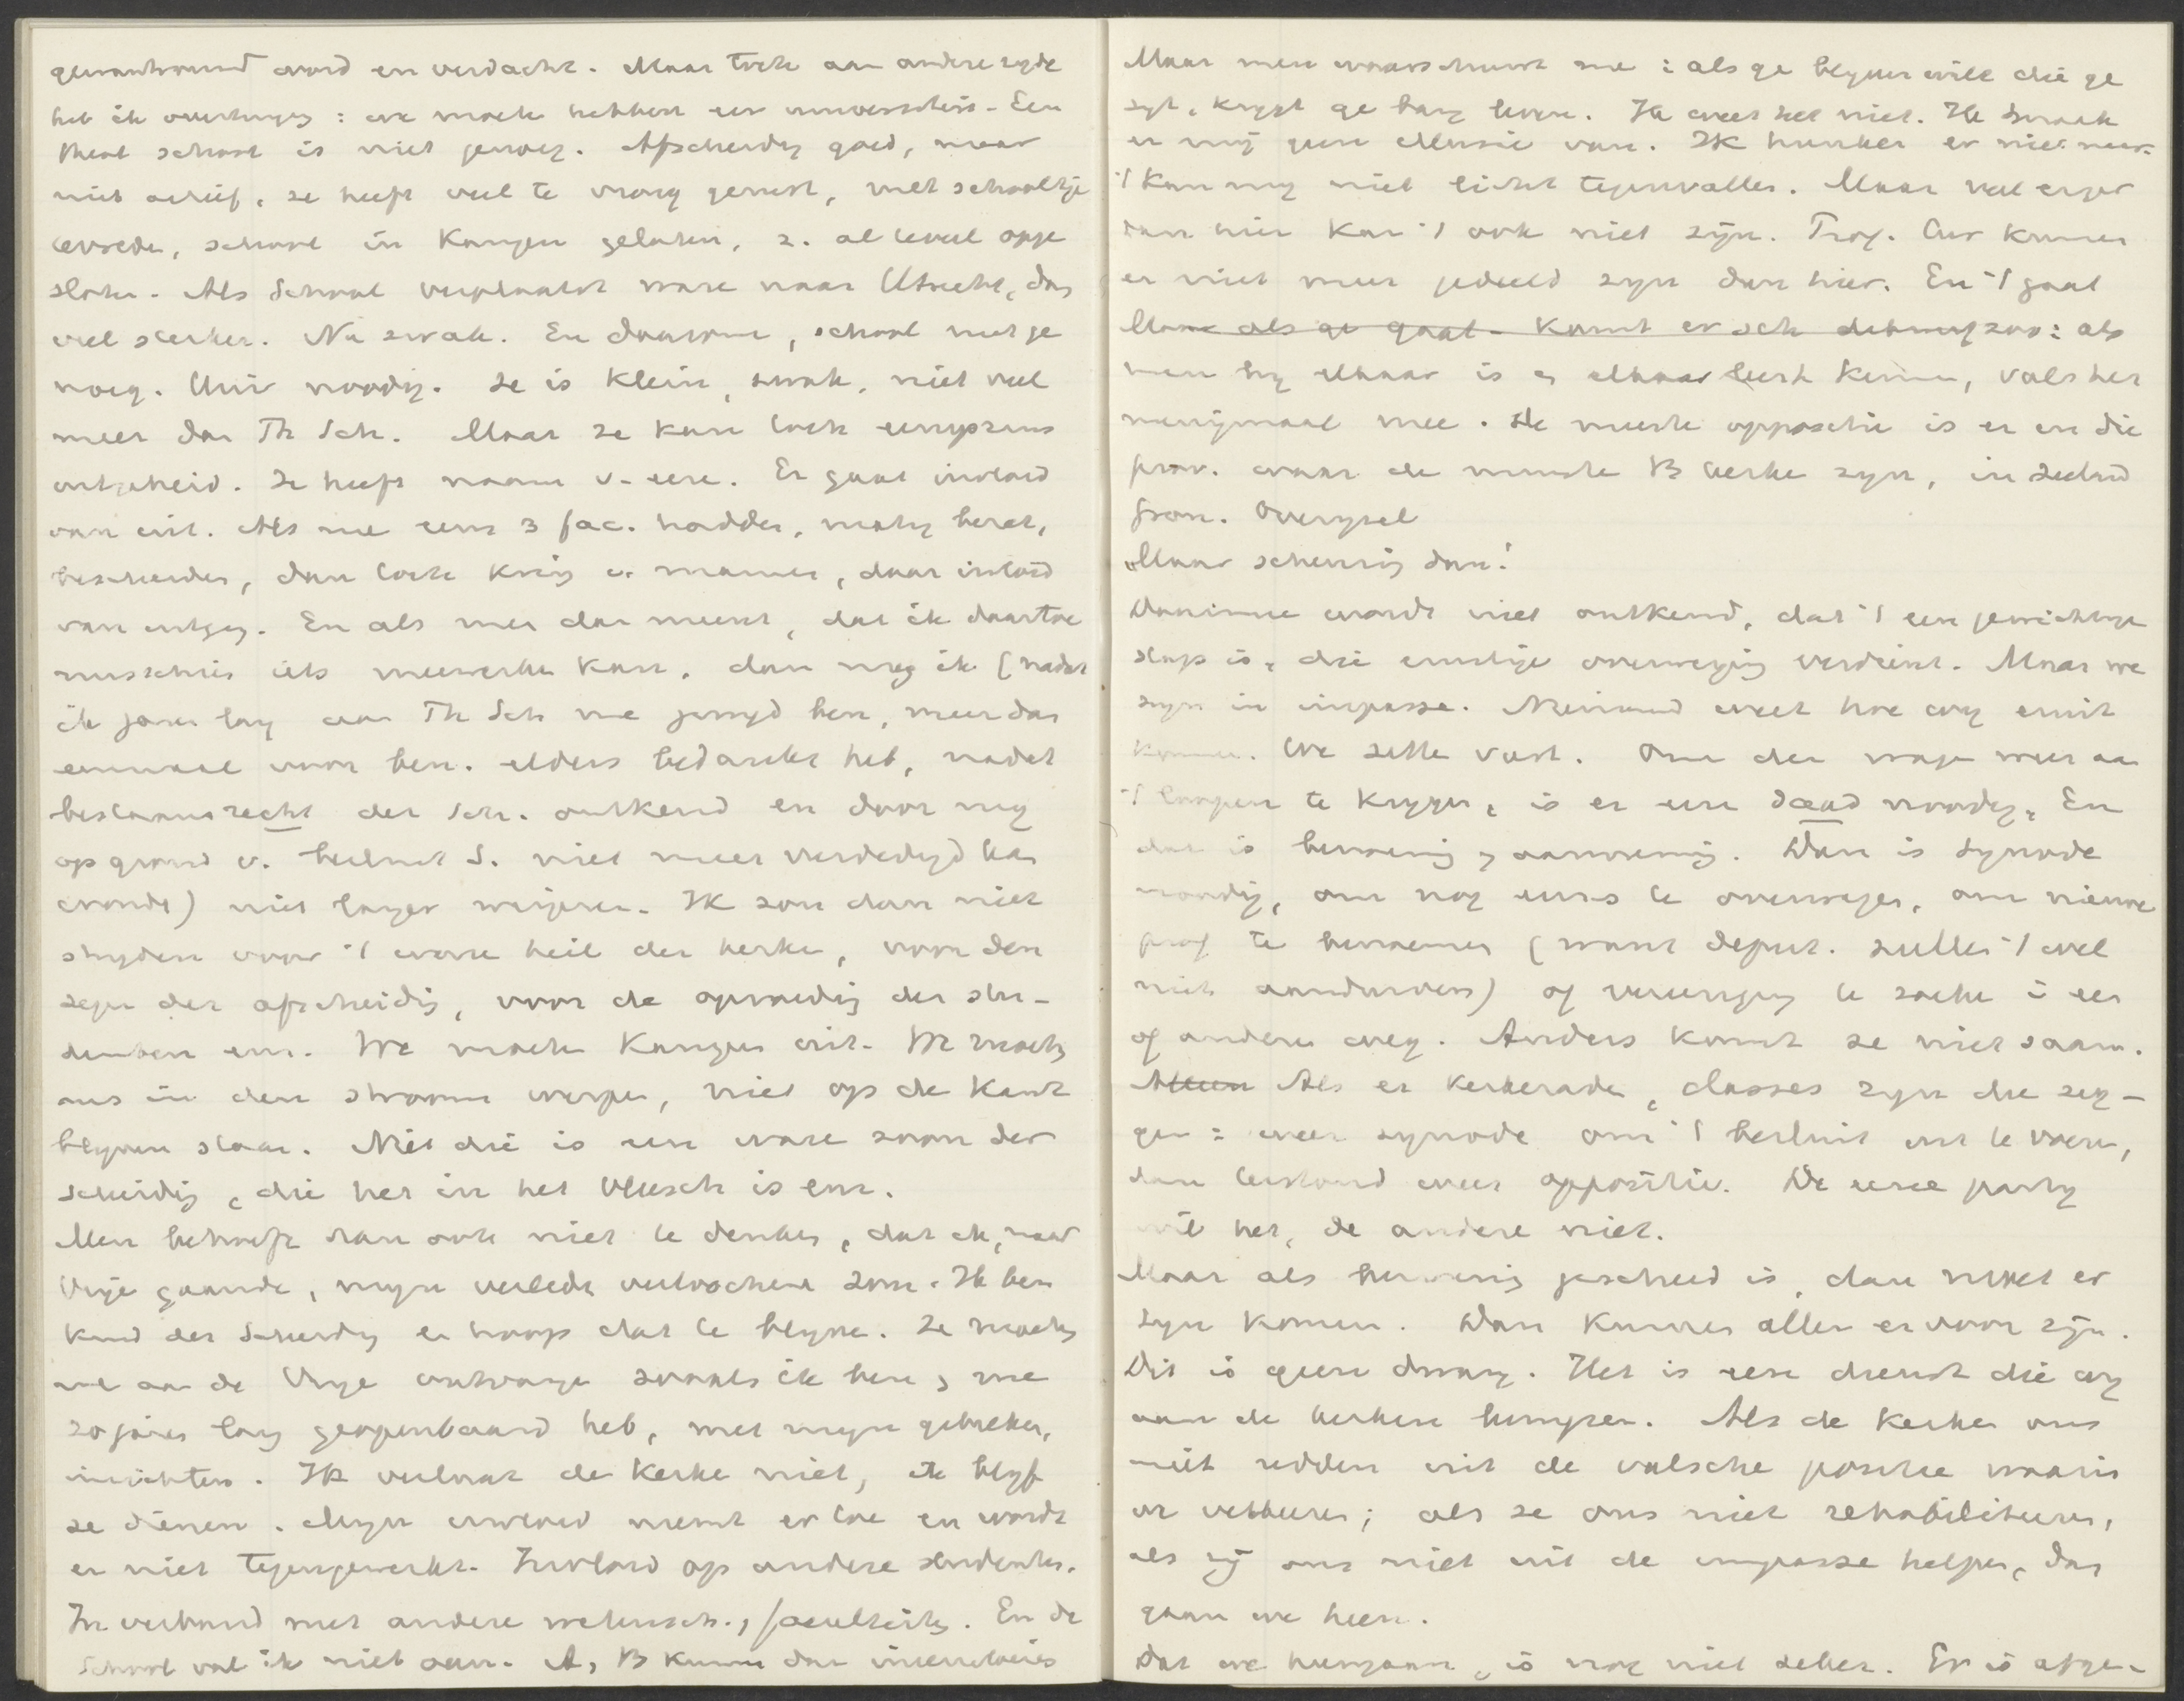 gewantrouwd word en verdacht. Maar toch aan andere zyde
heb ik overtuiging: we moeten hebben een universiteit. Een
theol school is niet genoeg. Afscheiding goed, maar
niet actief, ze heeft veel te vroeg gerust, met schooltje
tevreden, school in Kampen gelaten, z. al te veel opge
sloten. Als School verplaatst ware naar Utrecht, dan
veel sterker. Nu zwak. En daarom, school niet ge
noeg. Univ noodig. Ze is klein, zwak, niet veel
meer dan Th Sch. Maar ze kan toch eenigszins
ontz. heid. Ze heeft naam v. eere. Er gaat invloed
van uit. Als we eens 3 fac. hadden, matig bezet,
bescheiden, dan toch kring v. mannen, daar invloed
van uitging. En als men dan meent, dat ik daartoe
misschien iets meewerken kan, dan mag ik (nadat
ik jaren lang aan Th Sch me gewyd heb, meer dan
eenmaal voor ben. elders bedankt heb, nadat
bestaansrecht der Sch. ontkend en door my
op grond v. besluit S. niet meer verdedigd kan
worden) niet langer weigeren. Ik zou dan niet
stryden voor 't ware heil der kerken, voor den
zegen der afscheiding, voor de opvoeding der stu-
denten enz. We moeten Kampen uit. We moeten
ons in den stroom werpen, niet op de kant
blyven staan. Niet die is een ware zoon der
scheiding, die het in het vleesch is enz.
Men behoeft dan ook niet te denken, dat ik, naar
Vrije gaande, myn verleden verloochenen zou. Ik ben
kind der Scheiding en hoop dat te blyven. Ze moeten
me aan de Vrije ontvangen zooals ik ben, me
20 jaren lang geopenbaard heb, met myn gebreken,
inzichten. Ik verlaat de Kerken niet, ik blyf
ze dienen. Myn invloed neemt er toe en wordt
er niet tegengewerkt. Invloed op andere studenten.
In verband met andere wetensch., faculteiten. En de
School val ik niet aan. A, B kunnen dan
Maar men waarschuwt me: als ge blyven wilt die ge
zyt, krygt ge bang leven. Ik weet het niet. Ik maak
er mij geen illusie van. Ik hunker er niet naar.
't Kan my niet licht tegenvallen. Maar veel erger
dan hier kan 't ook niet zijn. Prof. Cur kunnen
er niet meer gedeeld zyn dan hier. En 't gaat
Maar als ge gaat - komt er ook zoo: als
men by elkaar is en elkaar leert kennen, valt het
menigmaal mee. De meeste oppositie is er in die
prov. waar de minste B kerken zyn, in Zeeland
Gron. Overysel
Maar scheuring dan!
Daarmee wordt niet ontkend, dat 't een gewichtige
stap is, die ernstige overweging verdient. Maar we
zyn in impasse. Niemand weet hoe wy eruit
komen. We zitten vast. Om den wagen weer aan
't loopen te krygen, is er een daad noodig. En
dat is benoeming, aanneming. Dan is Synode
noodig, om nog eens te overwegen, om nieuwe
prof te benoemen (want deput. zullen 't wel
niet aandurven) of vereeniging te zoeken i een
of andere weg. Anders komt ze niet saam.
Alleen Als er kerkeraden, classes zyn die zeg-
gen: weer synode om 't besluit uit te voeren,
dan terstond weer oppositie. De eene party
wil het, de andere niet.
Maar als benoeming geschied is, dan moet er
syn komen. Dan kunnen allen ervoor zijn.
Dit is geen dwang. Het is een dienst die wy
aan de kerken bewyzen. Als de kerken ons
niet redden uit de valsche positie waarin
we verkeeren; als ze ons niet rehabiliteeren,
als zij ons niet uit de impasse helpen, dan
gaan we heen.
Dat we heengaan, is nog niet zeker. Er is afge-